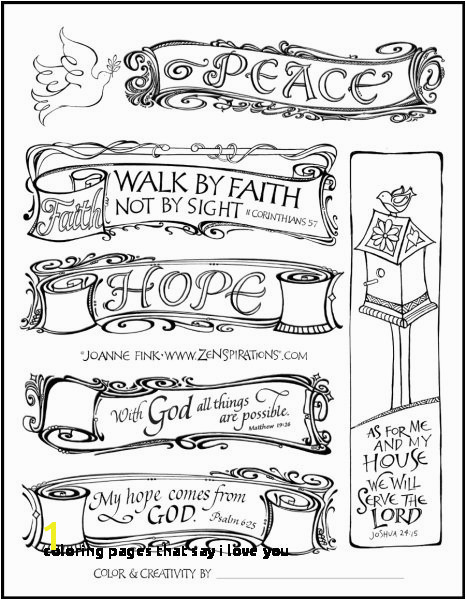 PEACE
WALK BY FAITH
Faith NOT BY SIGHT II CORINTHIANS 5:7
HOPE
©JOANNE FINK • WWW.ZENSPIRATIONS®.COM
With God all things
are possible.
Matthew 19:26
My hope comes from
GOD. Psalm 62:5
AS FOR ME
AND MY
HOUSE
WE WILL
SERVE THE
LORD
JOSHUA 24:15
1
coloring pages that say i love you
COLOR & CREATIVITY BY